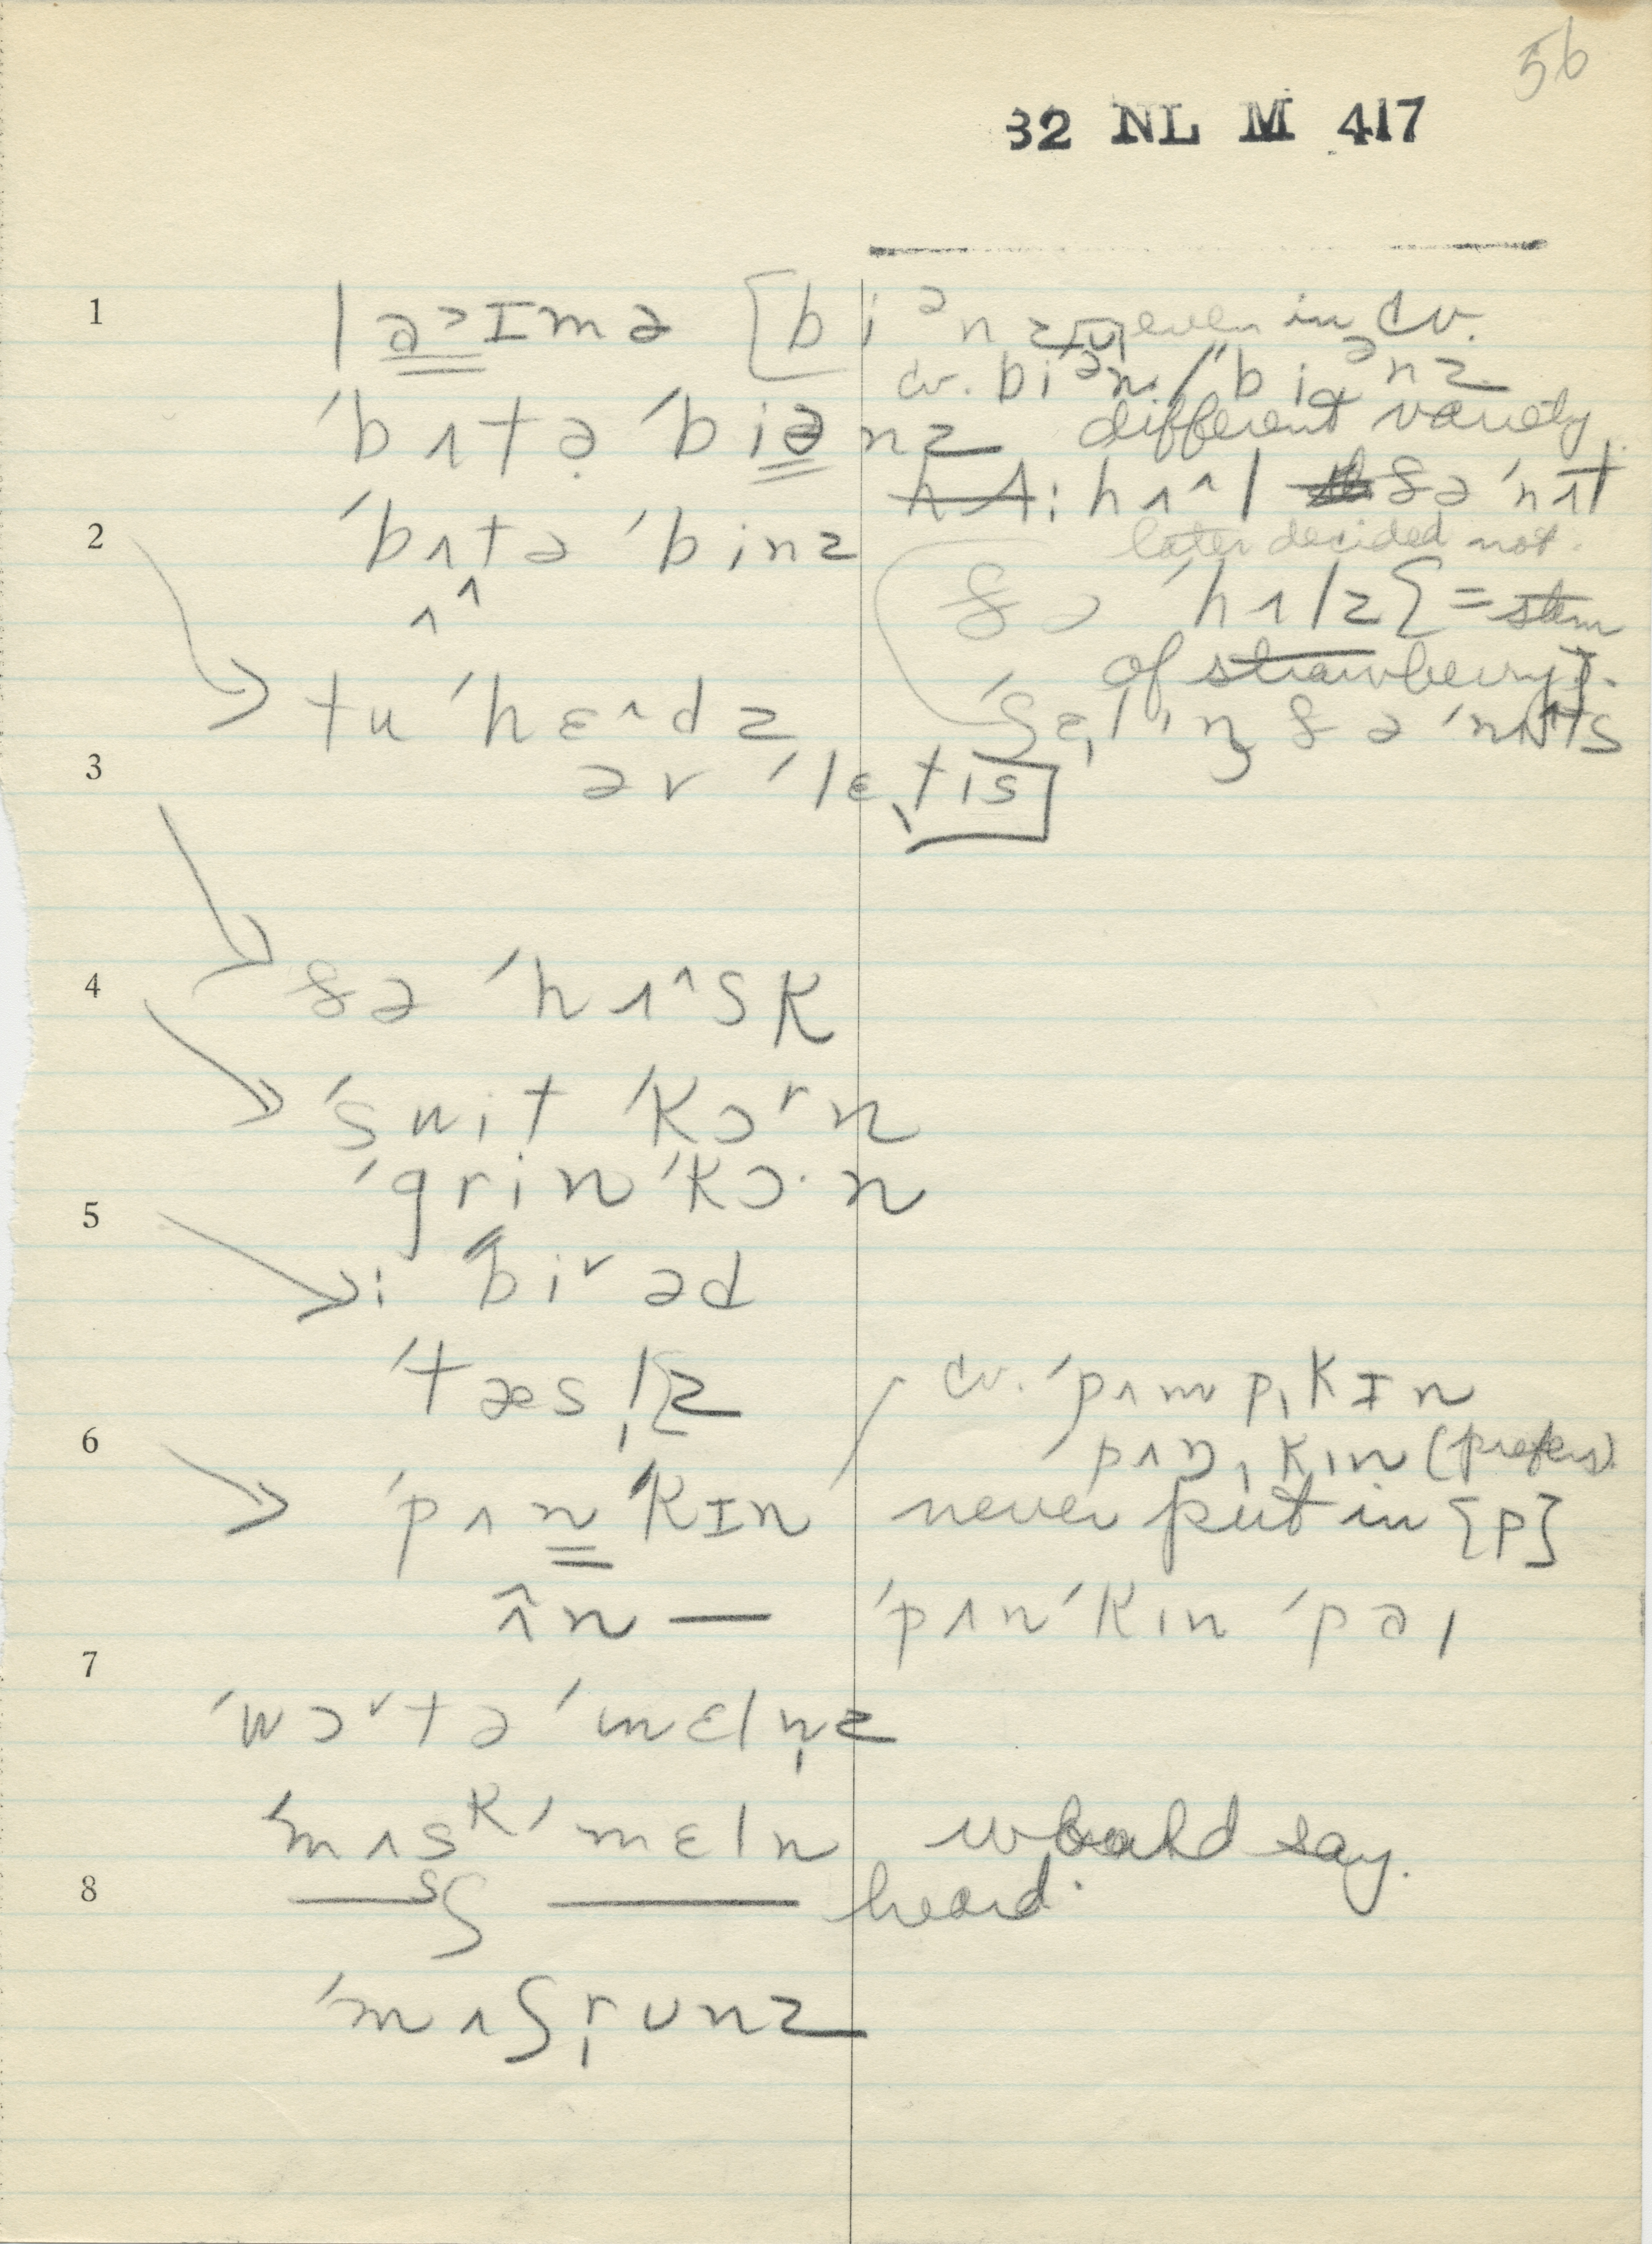 56
32 NL M 417
1 | ə˃ɪmə [biᵊnz even in cv.
cv. biᵊn. / ˈbiᵊnz
ˈbʌtə̣ ˈbiənz different variety
h ʌ: hʌ^l ðə ˈnʌt
2 ˈbʌtə ˈbinz later decided not.
ʌ^
ðə ˈhʌlz [= stem
of strawberry].
tu ˈhɛ^dz ˈʃɛ̩lɪŋ ðə ˈnʌts
3 ər ˈlɛ̩tis
4 ðə ˈhʌ^sk
ˈswit ˈkɔʳn
ˈgrin ˈkɔ·n
5 i ˈbi˅əd
ˈtæsl̩z cv. ˈpʌmp̩kɪn
6 pʌn̩kin (prefers)
ˈpʌnˈkɪn never put in [p]
ʌ̂n — ˈpʌnˈkin ˈpəɪ
7
ˈwɔ˅tə ˈmɛln̩z
ˈmʌsᵏ ˈmɛln would say.
8 —ˢʃ — heard.
ˈmʌʃr̩unz